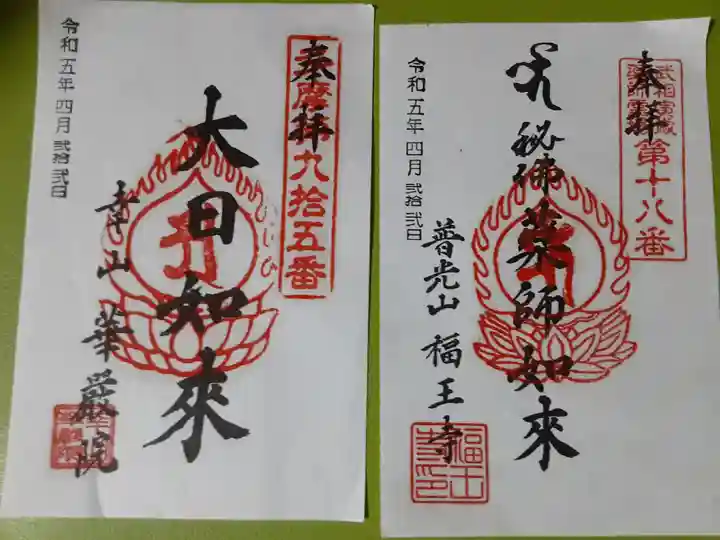 奉拝
大日如来
幸山 華嚴院
令和五年四月弐拾弐日
九拾五番
奉拝
秘佛薬師如来
普光山 福王寺
令和五年四月弐拾弐日
第十八番
福王寺印